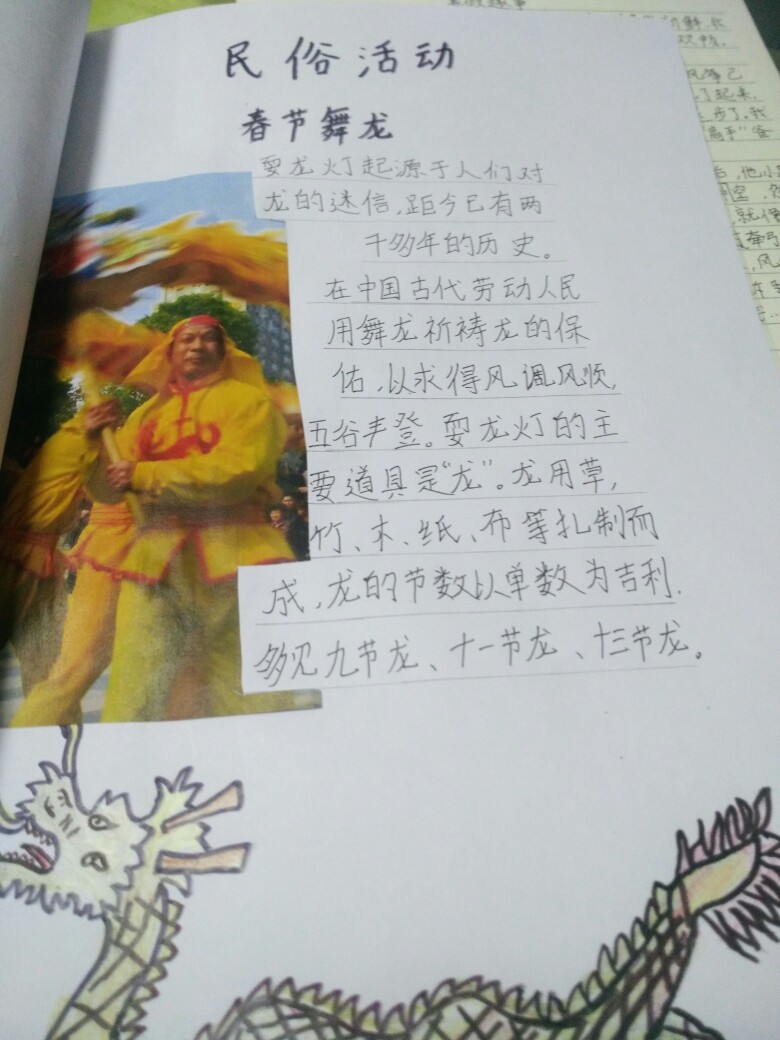 民俗活动
春节舞龙
耍龙灯起源于人们对
龙的迷信,距今已有两
千多年的历史。
在中国古代劳动人民
用舞龙祈祷龙的保
佑,以求得风调风顺,
五谷丰登。耍龙灯的主
要道具是“龙”。龙用草,
竹、木、纸、布等扎制而
成,龙的节数以单数为吉利.
多见九节龙、十一节龙、十三节龙。